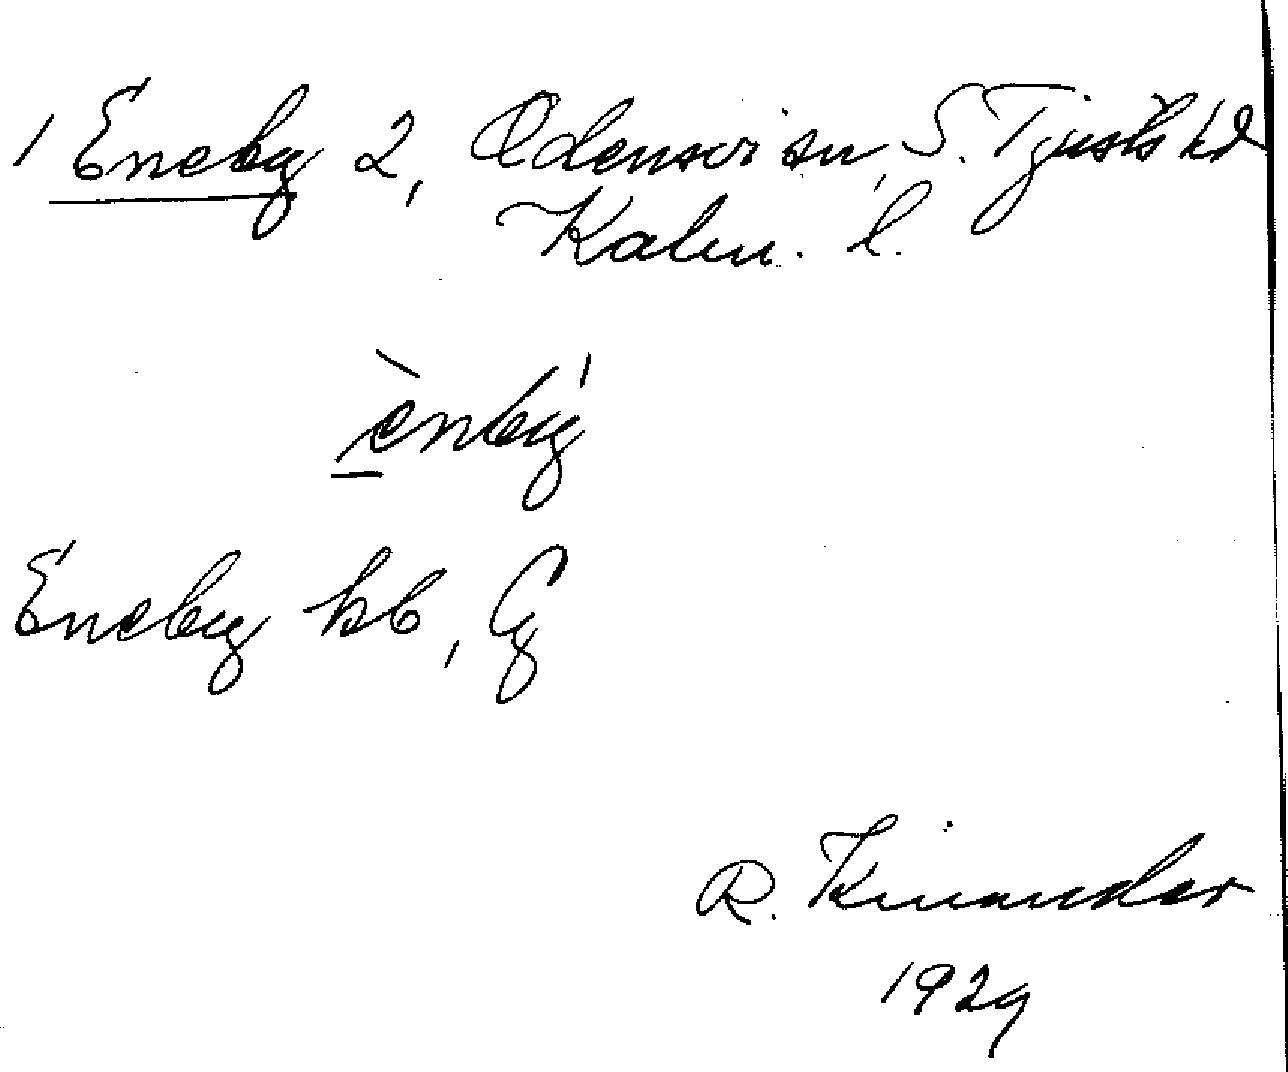 1 Eneby 2, Odensvi sn, S. Tjusts hd
Kalm. l.
ènbý
Eneby kb, Gg
R. Kinander
1929